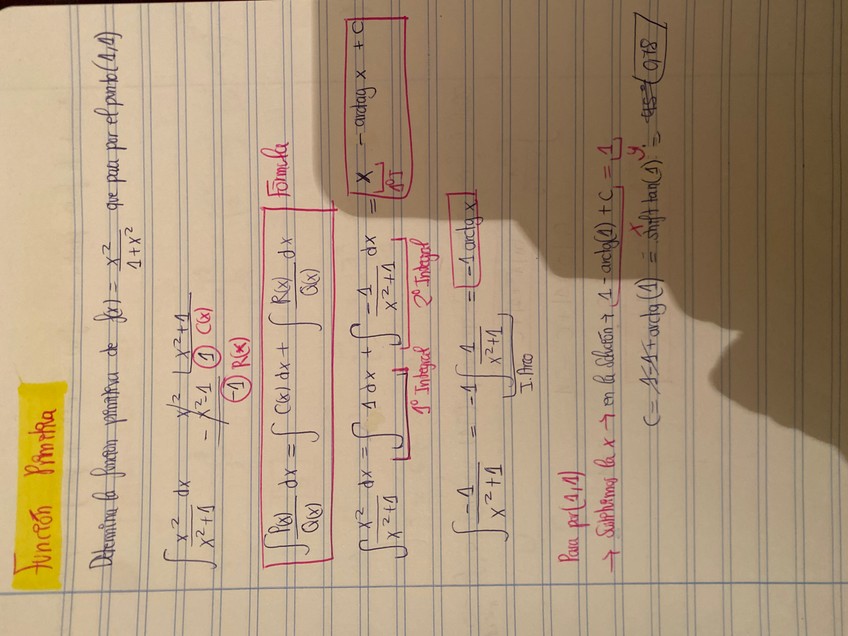 Función Primitiva
Determina la función primitiva de f(x) = x²/(1+x²) que pasa por el punto (1,1)
∫ x²/(x²+1) dx   x² |x²+1
-x²-1  1 C(x)
-1 R(x)
∫ P(x)/Q(x) dx = ∫ C(x) dx + ∫ R(x)/Q(x) dx  Fórmula
∫ x²/(x²+1) dx = ∫ 1 dx + ∫ -1/(x²+1) dx = x - arctag x + C
1º Integral  2º Integral  1ºI
∫ -1/(x²+1) = -1 ∫ 1/(x²+1) = -1 arctg x
I. Arco
Pasa por (1,1)
→ Sustituimos la x → en la solución → 1 - arctg(1) + C = 1
x y
C = 1-1+arctg(1) = shift tan(1) = 45º 0,78